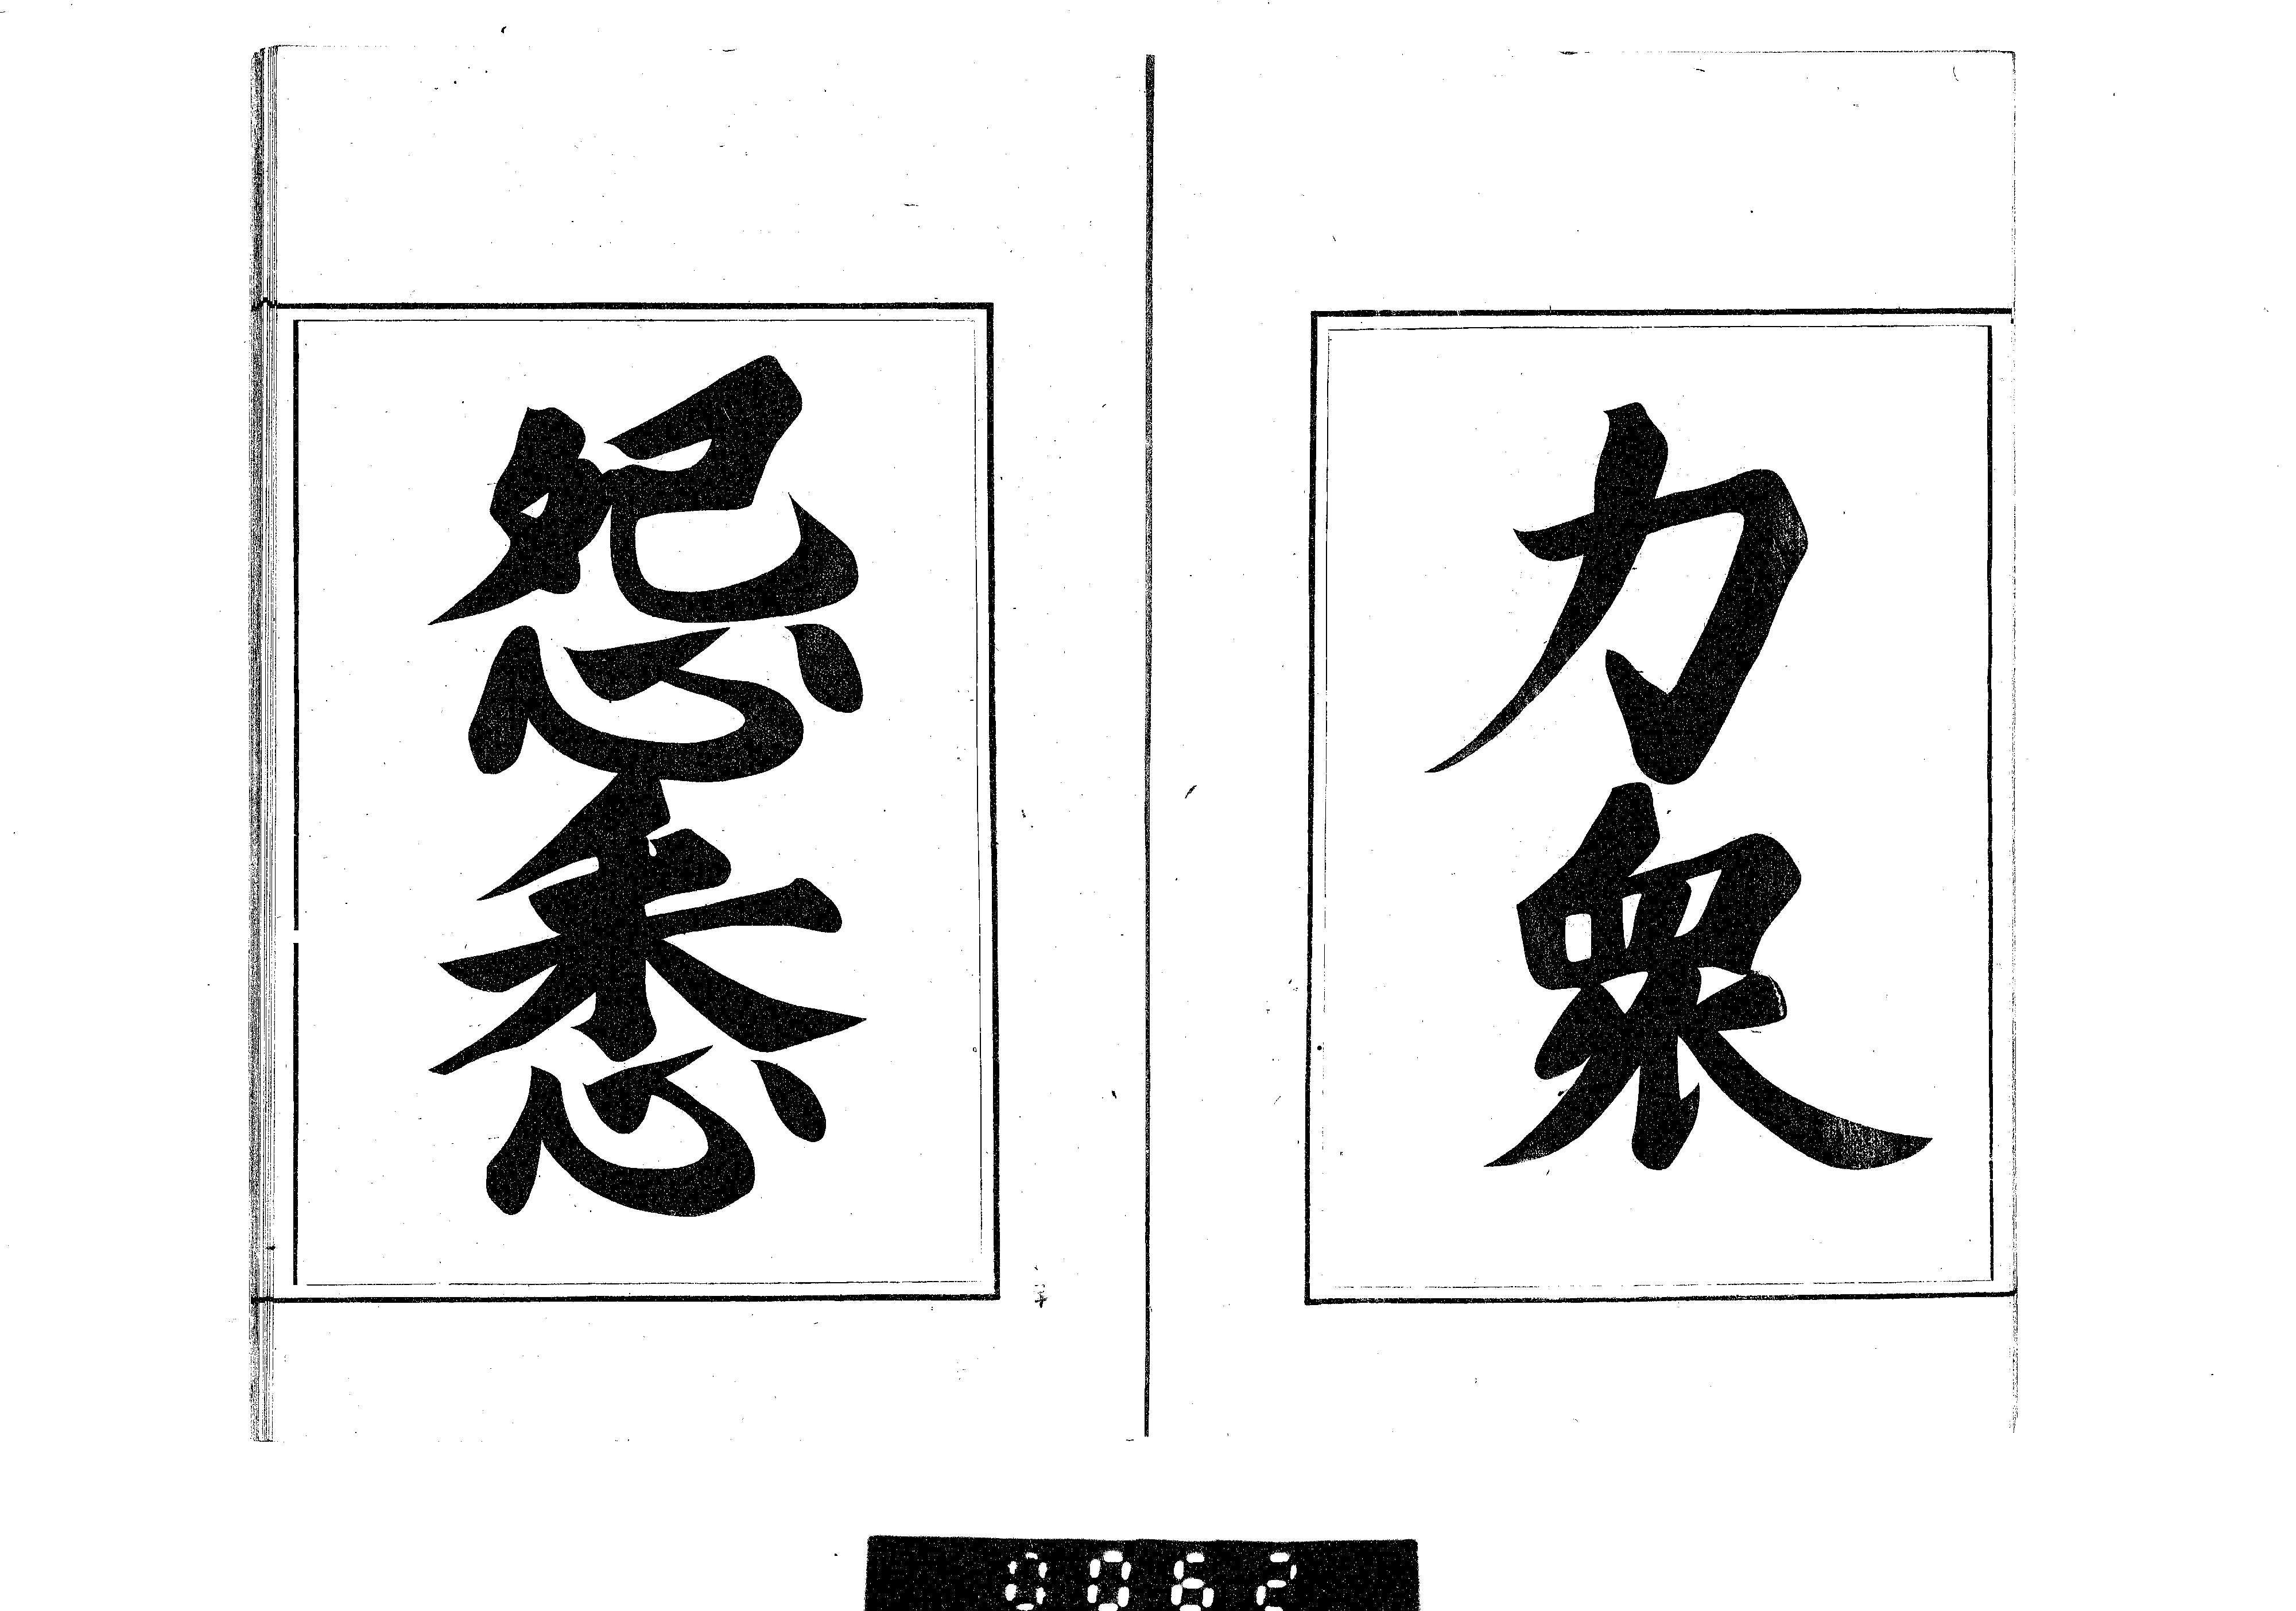 力衆
怨悉
0062